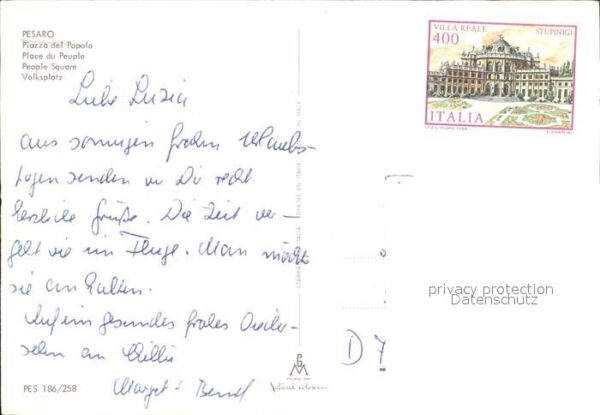 PESARO
Piazza del Popolo
Place du Peuple
People Square
Volksplatz
VILLA REALE STUPINIGI
400
ITALIA
Liebe Luzia
aus sonnigen frohen Urlaubs-
tagen senden wir Dir recht
herzliche Grüße. Die Zeit ver-
geht wie im Fluge. Man möcht
sie anhalten.
Auf ein gesundes frohes Wieder-
sehen an Willi
Margot + Bernd
privacy protection
Datenschutz
D 7
PES 186/258